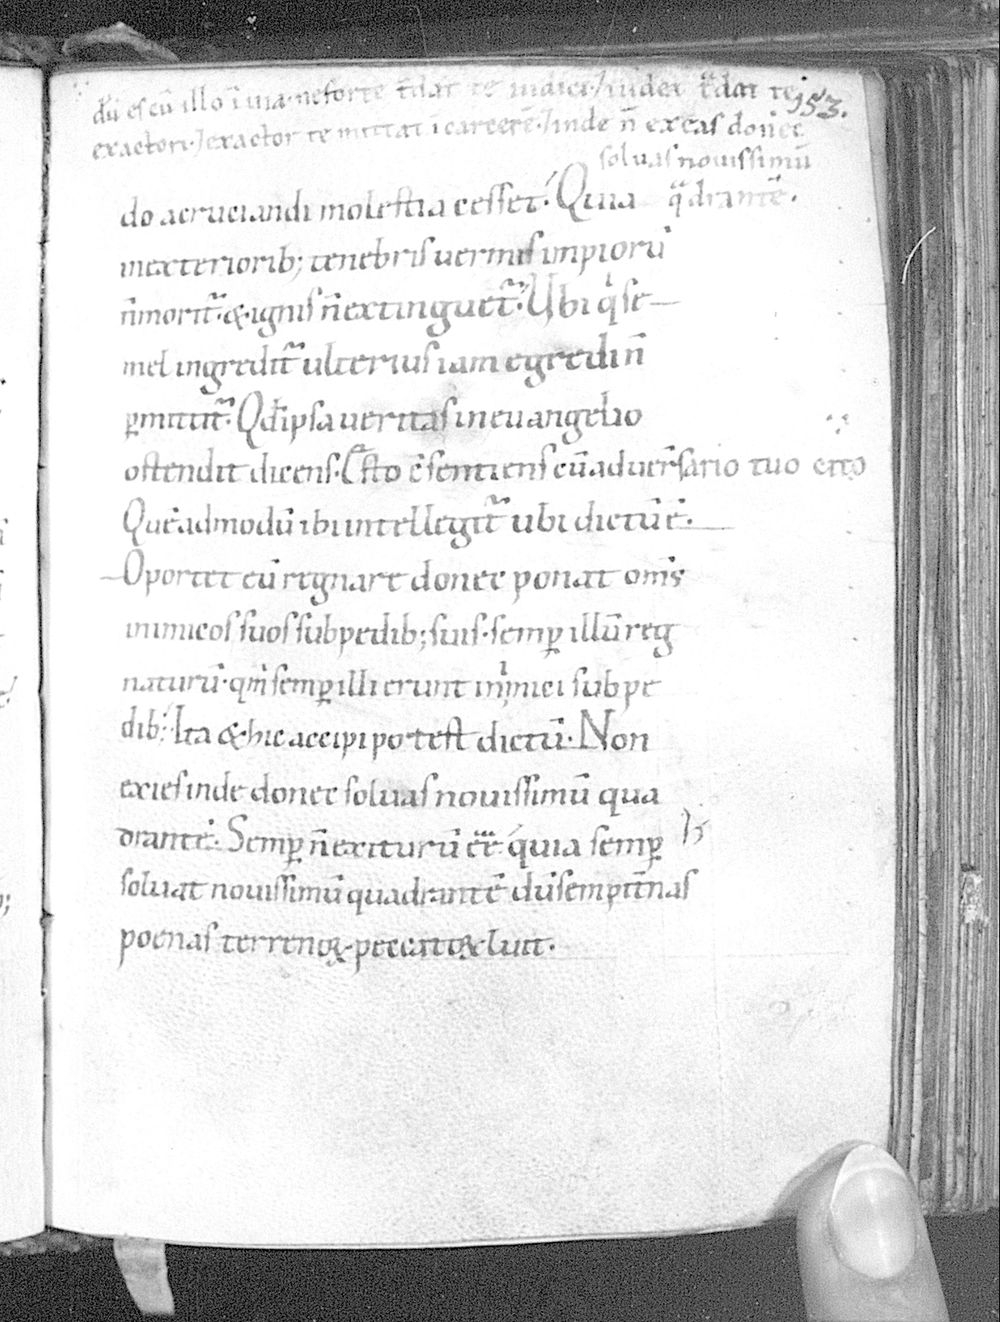 dū es cū illo ī uia. ne forte t̄dat te iudici. ⁊ iudex t̄dat te
153.
exactori. ⁊ exactor te mittat ī carcerē. ⁊ inde n̄ exeas donec
soluas nouissimū
do acruciandi molestia cesset. Quia q̄drantē.
inexteriorib; tenebris uermis impiorū
n̄ moritᷓ. & ignis n̄ extinguetᷓ. Ubi qͥ se
mel ingreditᷓ ulterius iam egredi n̄
ꝑmittitᷓ. Qđ ipsa ueritas ineuangelio
ostendit dicens. Esto ↄ̄sentiens cū aduersario tuo cito
Quēadmodū ibi intellegitᷓ ubi dictū ē.
Oportet eū regnare donec ponat om̄s
inimicos suos sub pedib; suis. semꝑ illū reg
naturū. qm̄ semꝑ illi erunt inimici sub pe
dib; Ita & hic accipi potest dictū. Non
exies inde donec soluas nouissimū qua
drantē. Semꝑ n̄ exiturū eē. quia semꝑ
soluat nouissimū quadrantē dū sempit̄nas
poenas terrenoꝝ peccatoꝝ luit.